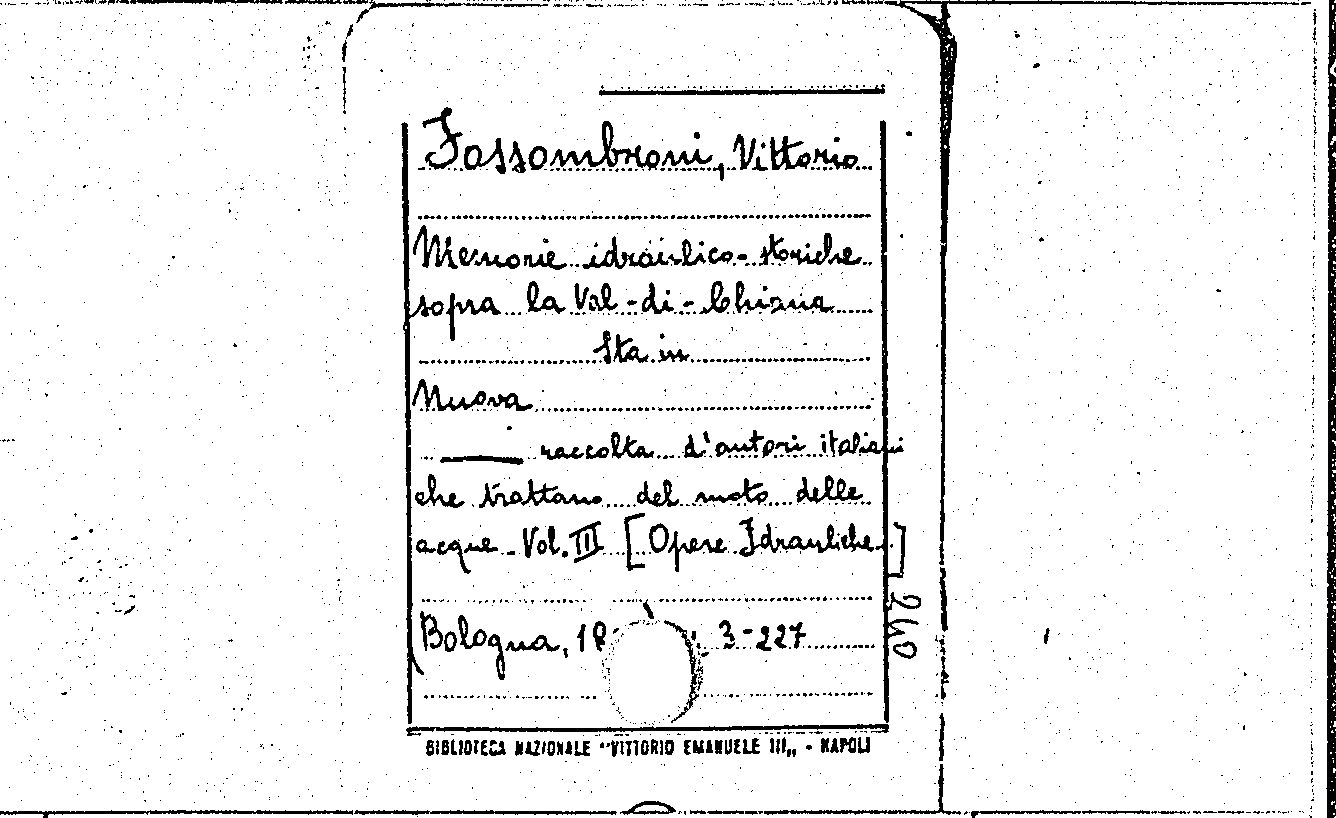 Fossombroni, Vittorio
Memorie idraulico-storiche
sopra la Val-di-Chiana
Sta in
Nuova
raccolta d'autori italiani
che trattano del moto delle
acque. Vol. III [Opere Idrauliche]
240
Bologna, 3-227
BIBLIOTECA NAZIONALE "VITTORIO EMANUELE III„ - NAPOLI